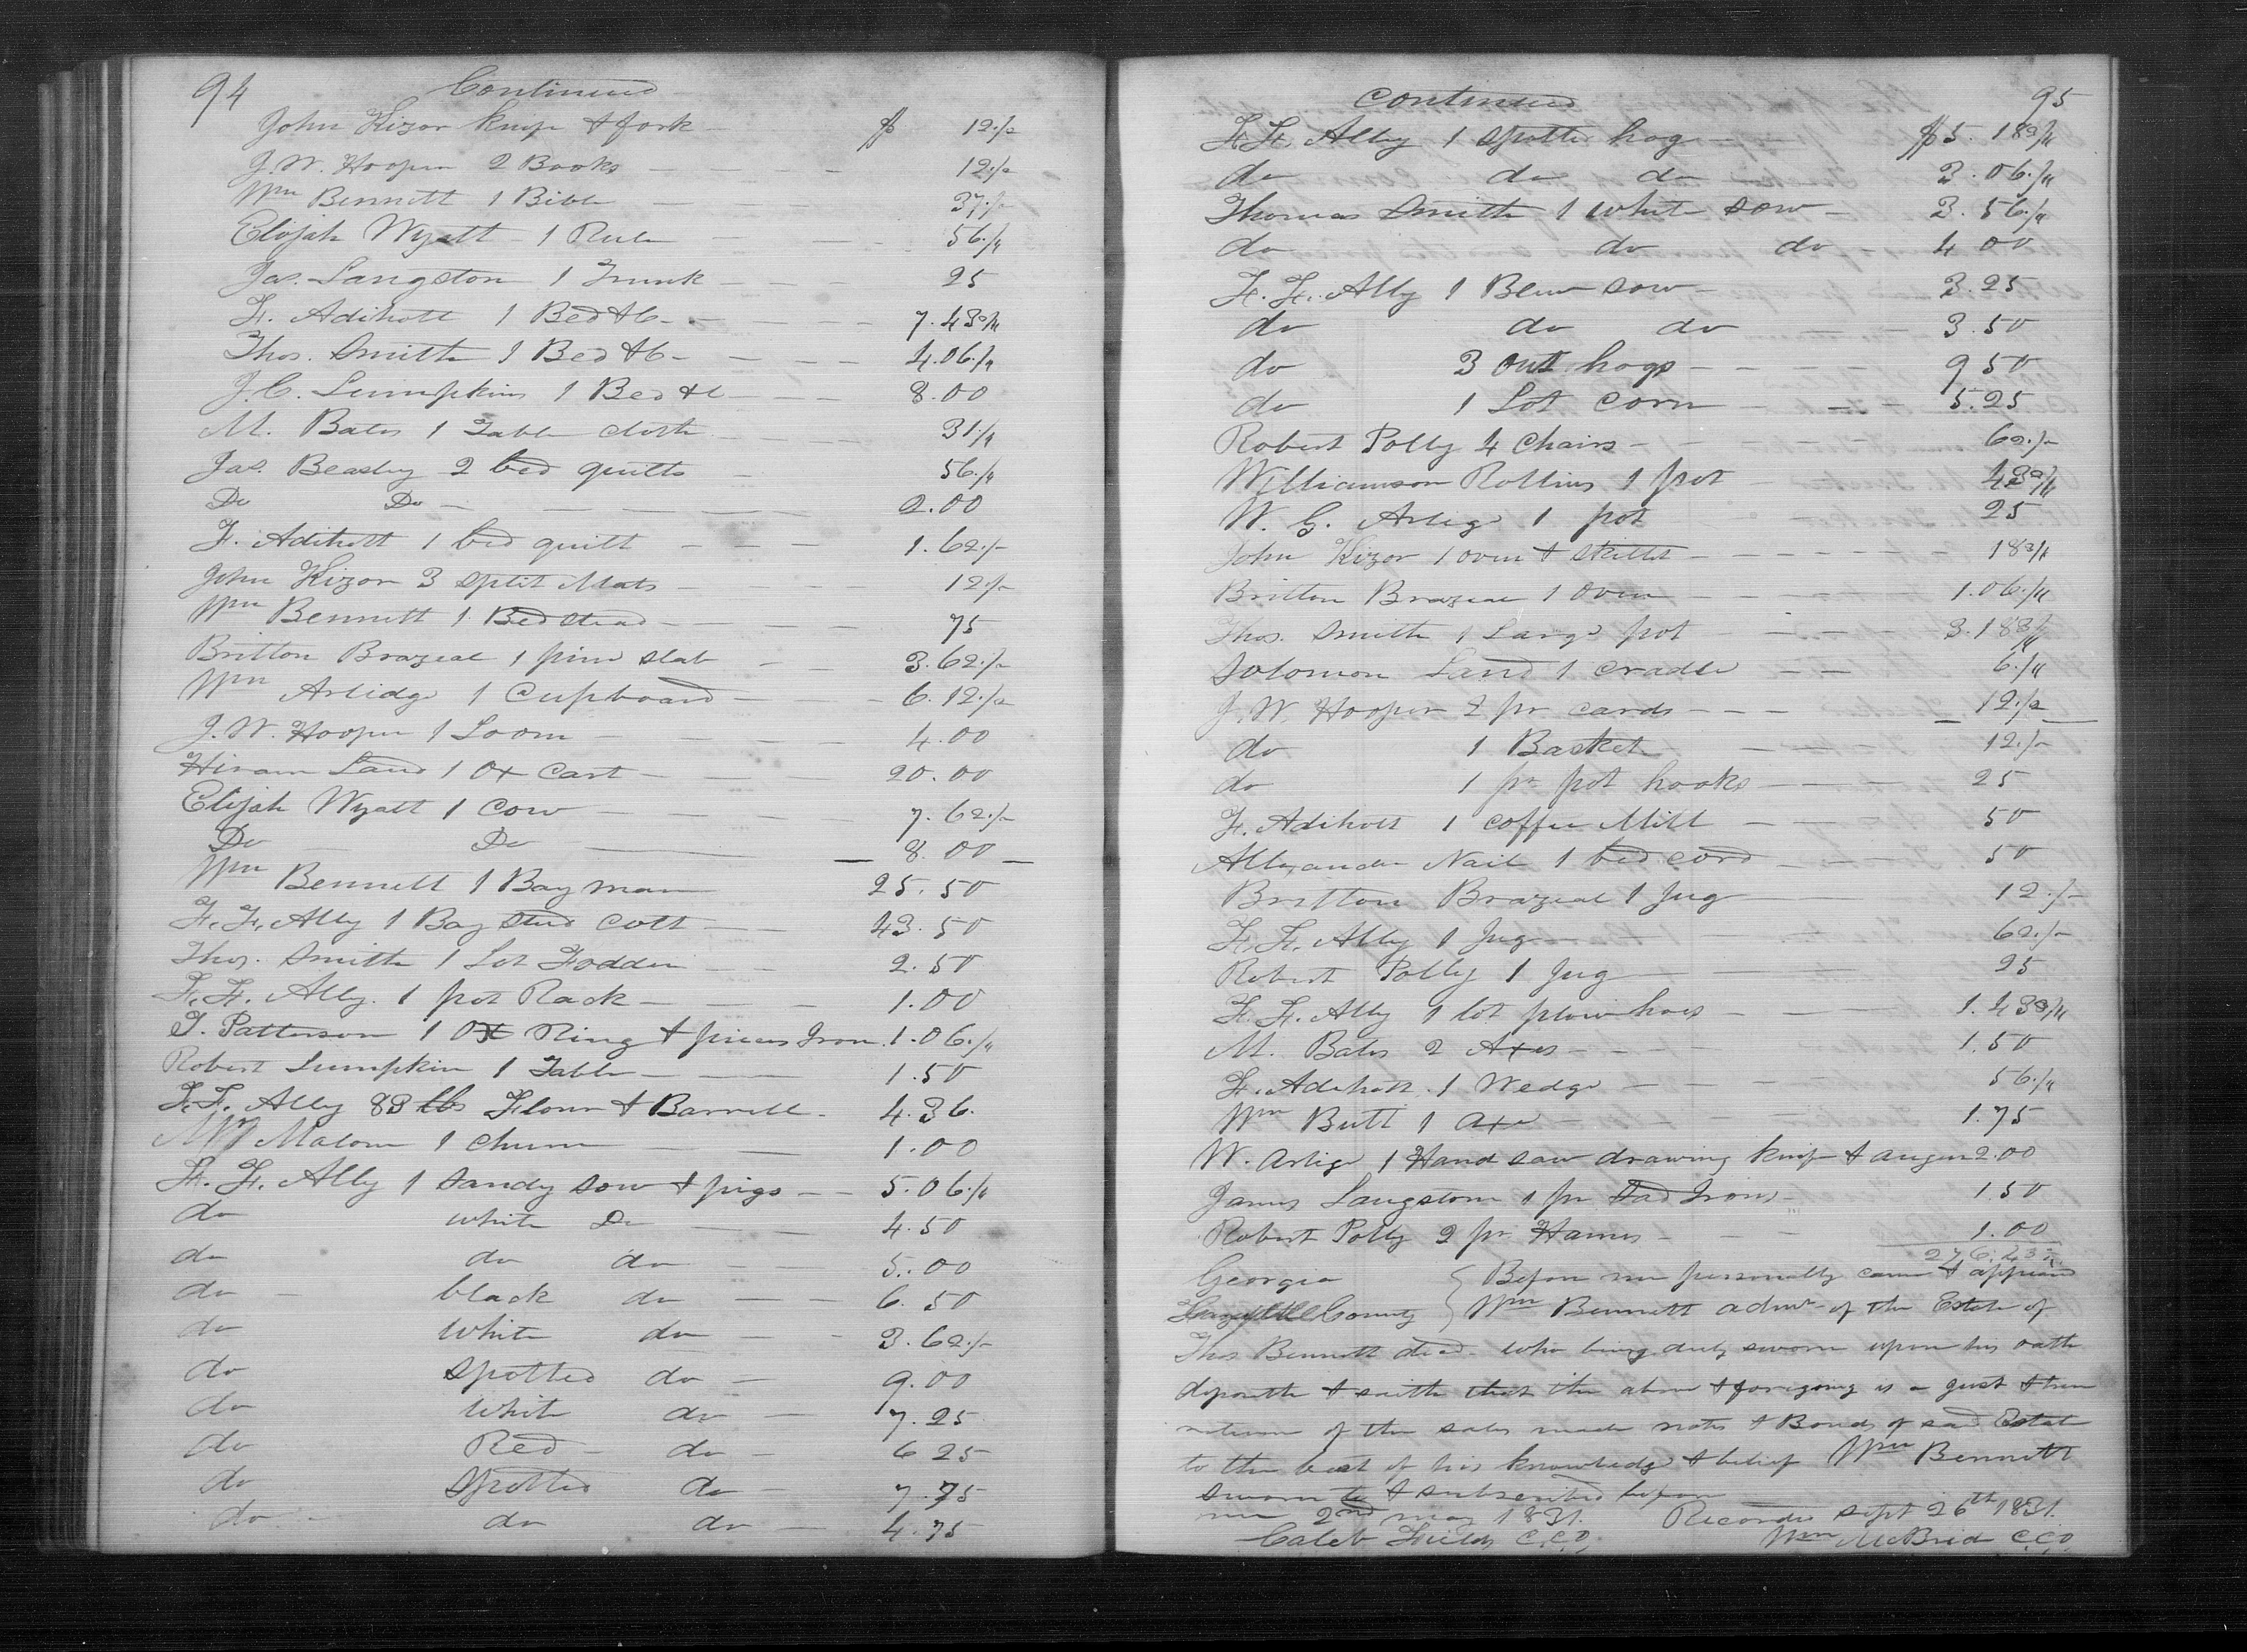 94 Continued
John Kizor knife & fork $ 12 1/2
J. W. Hooper 2 Books 12 1/2
Wm Bennett 1 Bible 37 1/2
Elijah Wyatt 1 Rule 56 1/4
Jas. Langston 1 Trunk 25
F. Adiholt 1 Bed &c 7.43 3/4
Thos. Smith 1 Bed &c 4.06 1/4
J. C. Lumpkin 1 Bed &c 8.00
M. Bates 1 Table cloth 31 1/4
Jas. Beasley 2 bed quilts 56 1/4
Do Do 2.00
F. Adiholt 1 bed quilt 1.62 1/2
John Kizor 3 split Mats 12 1/2
Wm Bennett 1 Bedstead 75
Britton Brazeal 1 pine slab 3.62 1/2
Wm Artidge 1 Cupboard 6.12 1/2
J. W. Hooper 1 Loom 4.00
Hiram Land 1 Ox Cart 20.00
Elijah Wyatt 1 Cow 7.62 1/2
Do Do 8.00
Wm Bennett 1 Bay mare 25.50
F. F. Ally 1 Bay stud Colt 43.50
Thos. Smith 1 Lot Fodder 2.50
F. F. Ally 1 pot Rack 1.00
T. Patterson 1 Ox Ring & pieces Iron 1.06 1/4
Robert Lumpkin 1 Table 1.50
F. F. Ally 83 lbs Flour & Barrell 4.36
Malone 1 churn 1.00
F. F. Ally 1 sandy sow & pigs 5.06 1/4
do white Do 4.50
do do do 5.00
do black do 6.50
do white do 3.62 1/2
do spotted do 9.00
do white do 7.25
do Red do 6 25
do spotted do 7.75
do do do 4.75
Continued 95
F. F. Ally 1 spotted hog $5.18 3/4
do do do 3.06 1/4
Thomas Smith 1 white sow 3.56 1/4
do do do 4 00
F. F. Ally 1 Blew sow 3.25
do do do 3.50
do 3 out hogs 9 50
do 1 Lot Corn 5.25
Robert Polly 4 Chairs 62 1/2
Williamson Rollins 1 pot 43 3/4
W. G. Artige 1 pot 25
John Kizor 1 oven & skillet 18 3/4
Britton Brazeal 1 Oven 1.06 1/4
Thos. Smith 1 Large pot 3.18 3/4
Solomon Land 1 cradle 6 1/4
J. W. Hooper 2 pr cards 12 1/2
do 1 Basket 12 1/2
do 1 pr pot hooks 25
F. Adiholt 1 coffee Mill 50
Allexander Nail 1 bed cord 50
Britton Brazeal 1 Jug 12 1/2
F. F. Ally 1 Jug 62 1/2
Robert Polly 1 Jug 25
F. F. Ally 1 lot plow hoes 1.43 3/4
M. Bates 2 Axes 1.50
F. Adiholt 1 Wedge 56 1/4
Wm Butt 1 axe 1.75
W. Artige 1 Hand saw drawing knife & auger 2.00
James Langston 1 pr Sad Irons 1.50
Robert Polly 2 pr Hames 1.00
276.23
Georgia } Before me personally came & appeard
Fayette County } Wm Bennett admr of the Estate of
Thos Bennett decd. who being duly sworn upon his oath
deposeth & saith that the above & foregoing is a just & true
return of the sales made notes & Bonds of said Estate
to the best of his knowledge & belief Wm Bennett
Sworn to & subscribed before
me 2nd may 1831. Recorded sept 26th 1831.
Caleb Fields C.C.O. Wm McBride C.C.O.